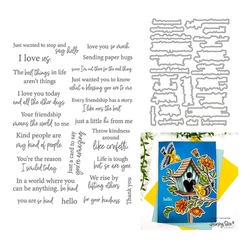 Just wanted to stop and
say hello
I love us.
The best things in life
aren't things
I love you today
and all the other days
Your friendship
means the world to me
Kind people are
my kind of people
You're the reason
I smiled today
In a world where you
can be anything, be kind
you are so kind
love you so much
Sending paper hugs
Just wanted you to know
what a blessing you are to me
Every friendship has a story.
I like ours the best.
just a little hi from me
Just a card to say
you're amazing
Throw kindness
around
like confetti
Life is tough
but so are you.
We rise by
lifting others
for kindness
hello
Thank you
hello